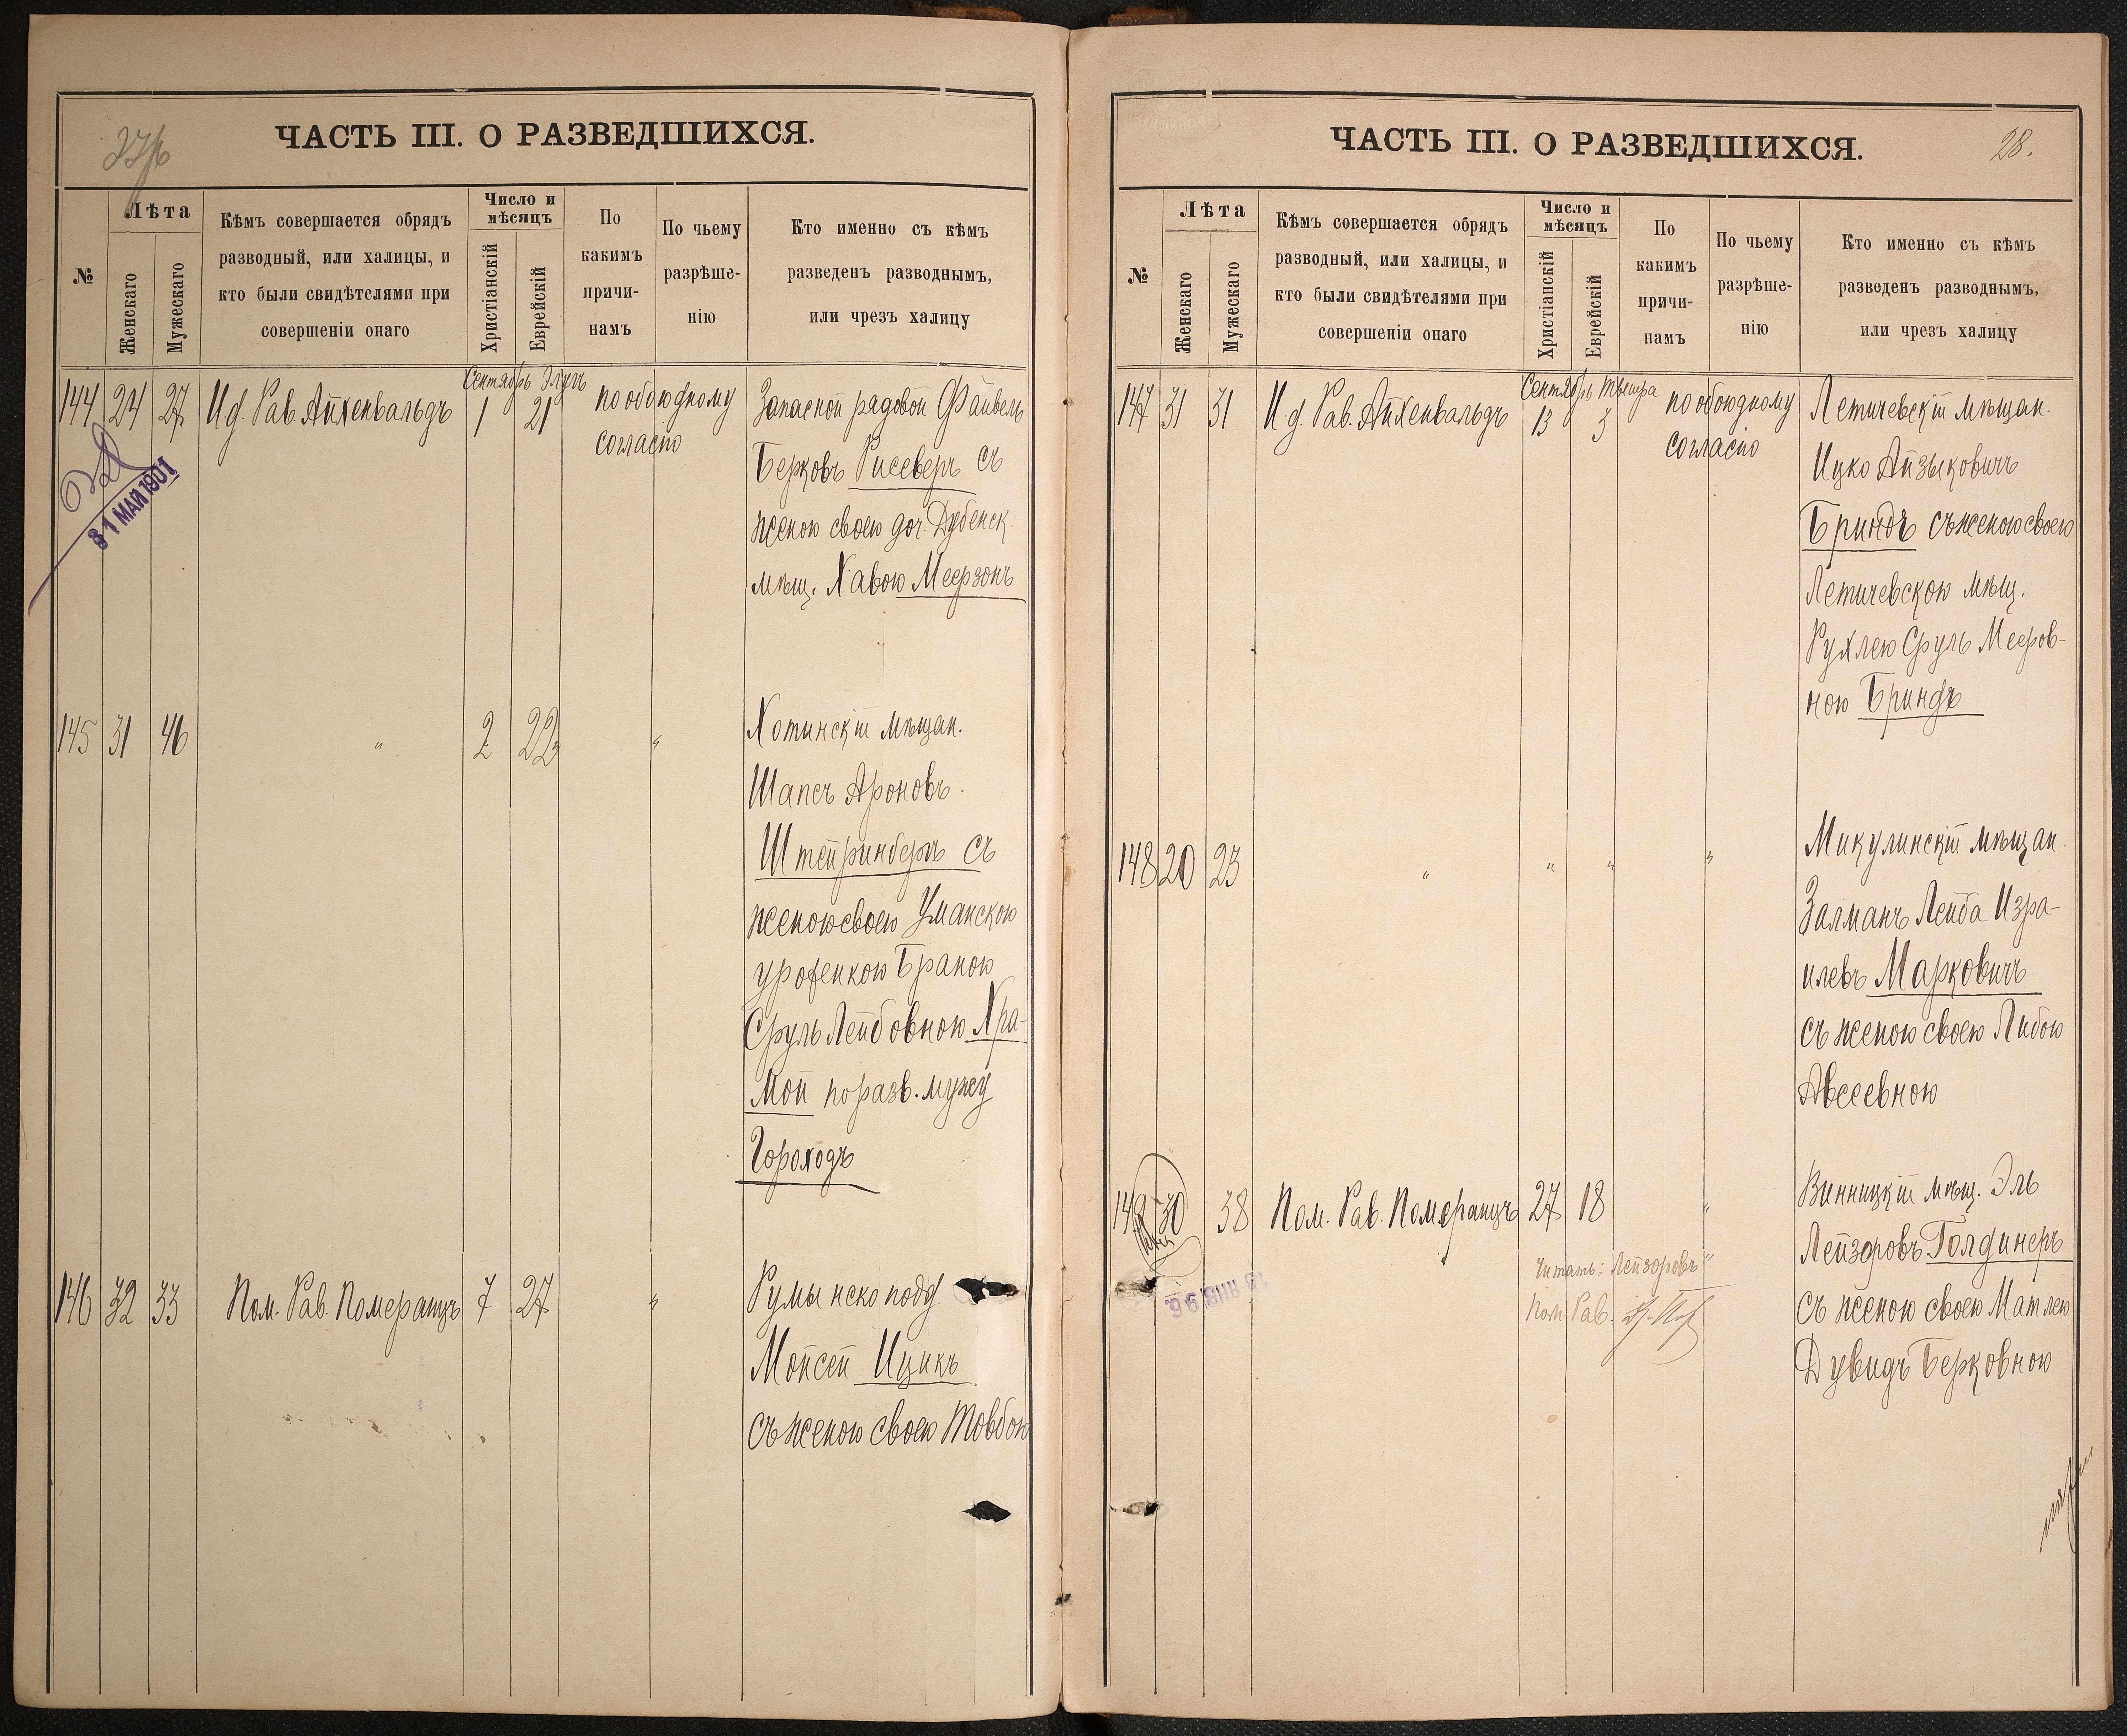 ЧАСТЬ III. О РАЗВЕДШИХСЯ.
№
Лѣта
Женскаго
Мужескаго
Кѣмъ совершается обрядъ
разводный, или халицы, и
кто были свидѣтелями при
совершеніи онаго
Число и
мѣсяцъ
Христіанскій
Еврейскій
По
какимъ
причи-
намъ
По чьему
разрѣше-
нію
Кто именно съ кѣмъ
разведенъ разводнымъ,
или чрезъ халицу
Сентябрь Элулъ
144 24 27 И. д. Рав. Айхенвальдъ 1 21 по обоюдному Запасной рядовой Файвель
согласію
Берковъ Рисеверъ съ
женою своею доч. Дубенск.
мѣщ. Хавою Меерзонъ
31 МАЙ 1901
145 31 46 " 2 22 " Хотинскій мѣщан.
Шапсъ Ароновъ
Штейринбергъ съ
женою своею Уманскою
уроженкою Браною
Сруль Лейбовною Хра-
мой по разв. мужу
Гороходъ
146 32 33 Пом. Рав. Померанцъ 7 27 " Румынско подд.
Мойсей Ицикъ
съ женою своею Товбою
ЧАСТЬ III. О РАЗВЕДШИХСЯ.
28.
№
Лѣта
Женскаго
Мужескаго
Кѣмъ совершается обрядъ
разводный, или халицы, и
кто были свидѣтелями при
совершеніи онаго
Число и
мѣсяцъ
Христіанскій
Еврейскій
По
какимъ
причи-
намъ
По чьему
разрѣше-
нію
Кто именно съ кѣмъ
разведенъ разводнымъ,
или чрезъ халицу
Сентябрь Тышра
147 31 31 И. д. Рав. Айхенвальдъ 13 3 по обоюдному Летичевскій мѣщан.
согласію
Ицко Айзыковичъ
Бриндъ съ женою своею
Летичевскою мѣщ.
Рухлею Сруль Мееров-
ною Бриндъ
148 20 23 " " " " Микулинскій мѣщан.
Залманъ Лейба Изра-
илевъ Марковичъ
съ женою своею Либою
Авсеевною
149 30 38 Пом. Рав. Померанцъ 27 18 " Винницкій мѣщ. Эль
Лейзоровъ Голдинеръ
Читать: „Лейзоровъ"
съ женою своею Матлею
Пом. Рав.
Дувидъ Берковною
13 ЯНВ 96